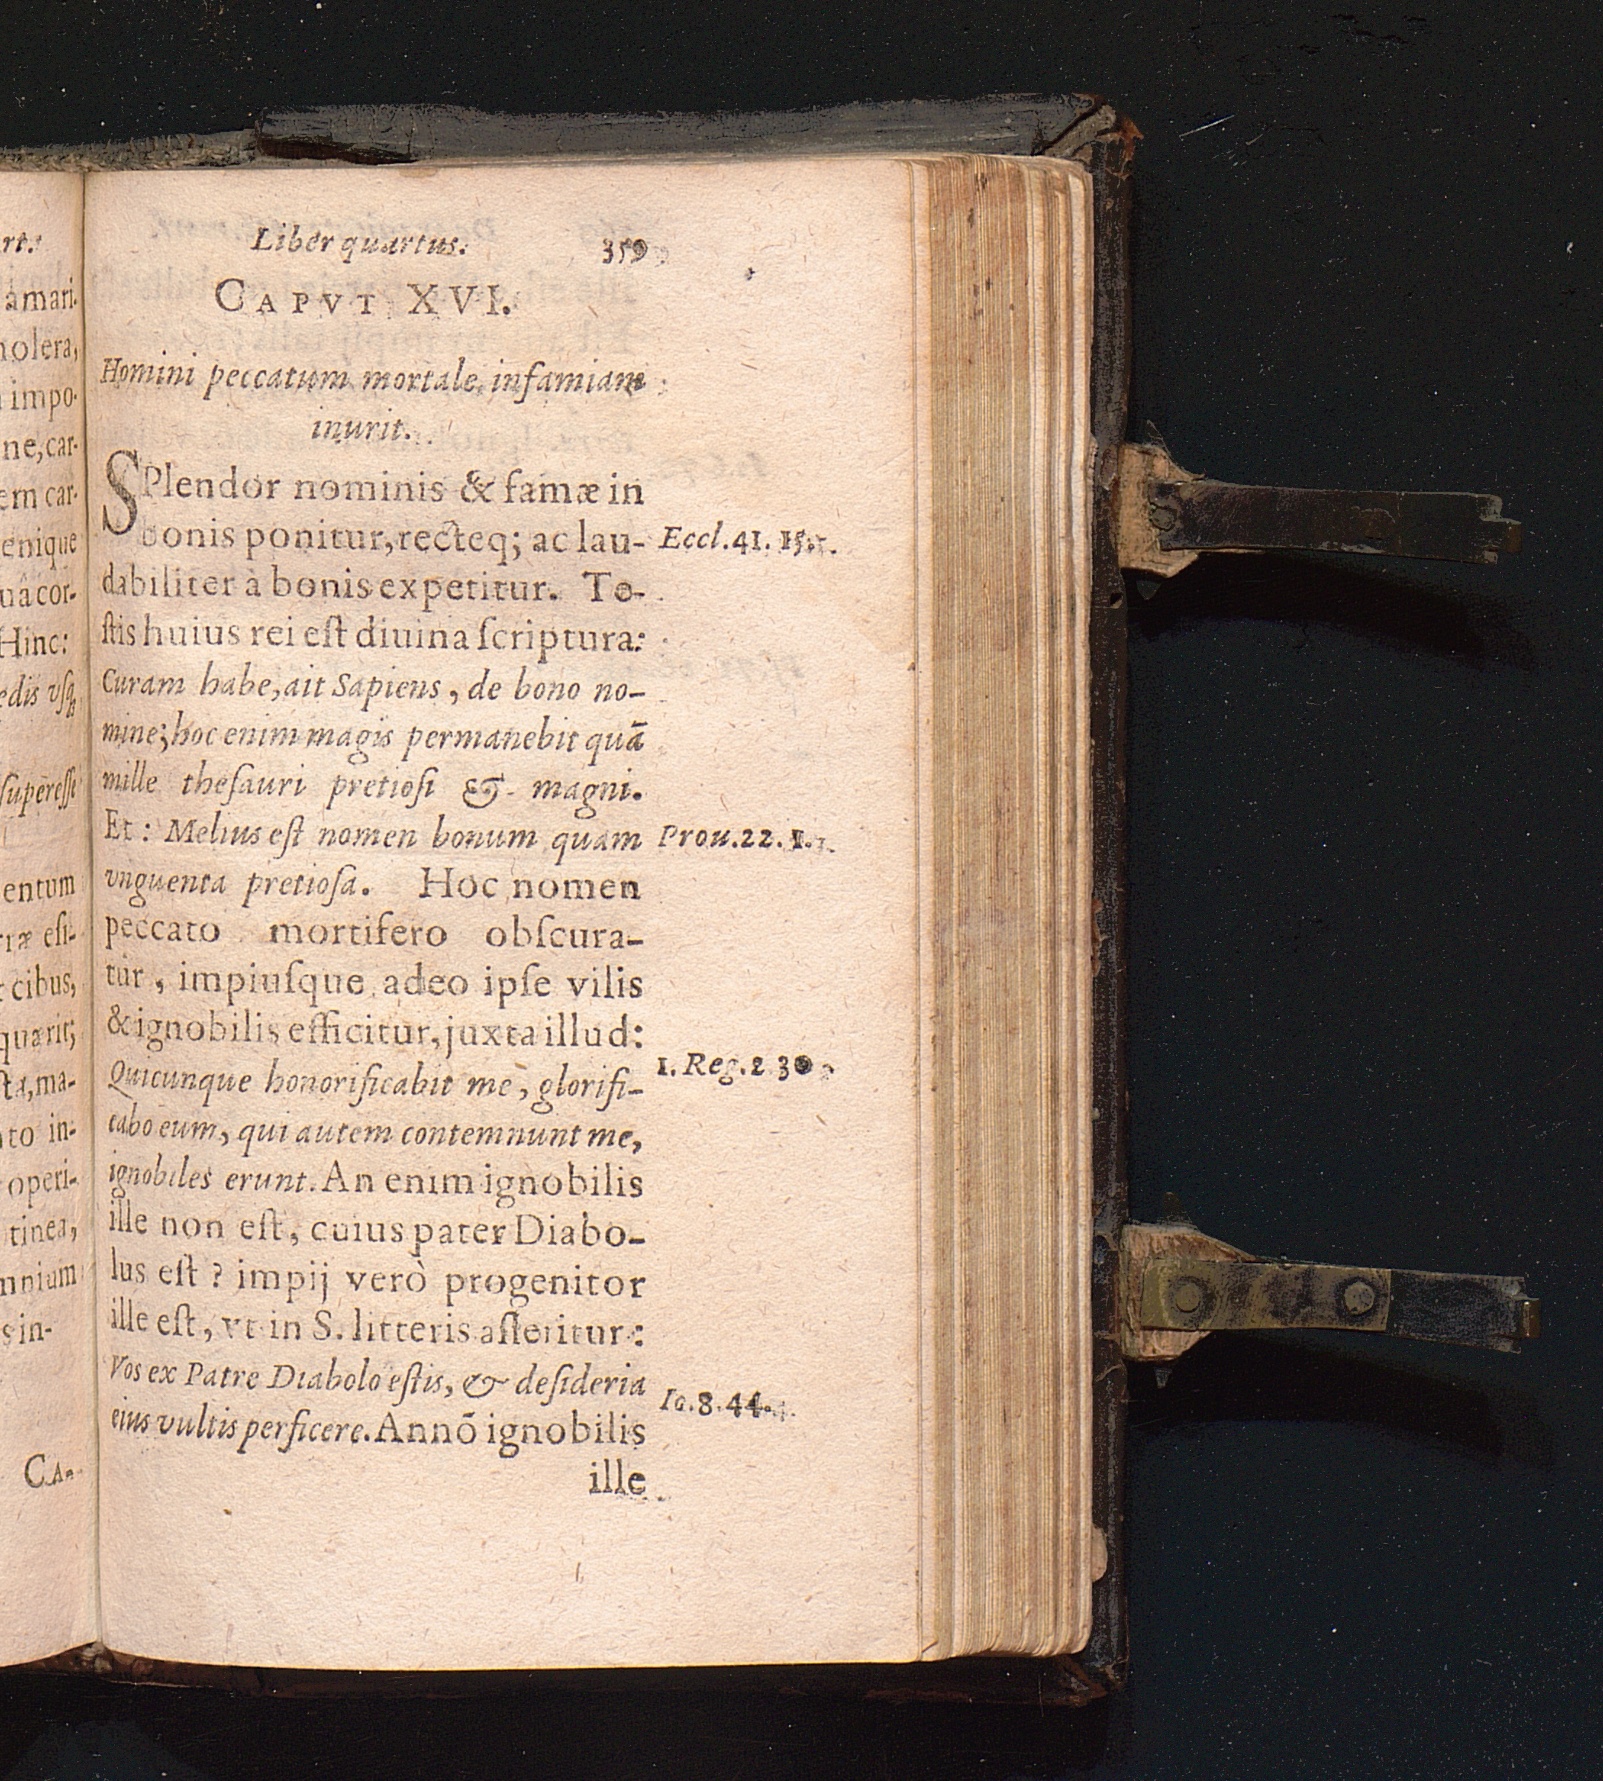 rt.
amari-
holera,
impo-
ne, car-
em car-
enique
uâ cor-
Hinc:
edis vſq;
ſupereſſe
entum
riæ eſi-
cibus,
quærit;
ſta, ma-
to in-
operi-
tinea,
mnium
s in-
CA-
Liber quartus. 359
CAPVT XVI.
Homini peccatum mortale infamiam
inurit.
SPlendor nominis & famæ in
bonis ponitur, recteq; ac lau- Eccl. 41. 15.
dabiliter à bonis expetitur. Te-
ſtis huius rei eſt diuina ſcriptura:
Curam habe, ait Sapiens, de bono no-
mine; hoc enim magis permanebit quā
mille theſauri pretioſi & magni.
Et: Melius eſt nomen bonum quam Prou. 22. 1.
vnguenta pretioſa. Hoc nomen
peccato mortifero obſcura-
tur, impiuſque adeo ipſe vilis
& ignobilis efficitur, juxta illud:
Quicunque honorificabit me, glorifi- 1. Reg. 2 30
cabo eum, qui autem contemnunt me,
ignobiles erunt. An enim ignobilis
ille non eſt, cuius pater Diabo-
lus eſt? impij verò progenitor
ille eſt, vt in S. litteris aſſeritur:
Vos ex Patre Diabolo eſtis, & deſideria Io. 8. 44.
eius vultis perficere. Annō ignobilis
ille